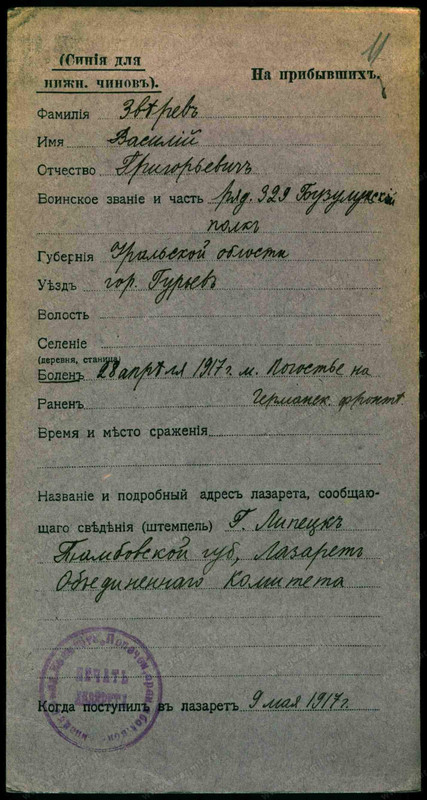 (Синія для
нижн. чиновъ).
На прибывшихъ.
Фамилія Звѣревъ
Имя Василій
Отчество Григорьевичъ
Воинское званіе и часть ряд. 329 Бузулукскій
полкъ
Губернія Уральской области
Уѣздъ гор. Гурьевъ
Волость
Селеніе
(деревня, станица)
Боленъ 28 апрѣля 1917 г. м. Погостье на
Раненъ Германск. фронтѣ
Время и мѣсто сраженія
Названіе и подробный адресъ лазарета, сообщаю-
щаго свѣдѣнія (штемпель) Г. Липецкъ
Тамбовской губ, Лазаретъ
Объединеннаго Комитета
ПЕЧАТЬ
ЛАЗАРЕТА
Когда поступилъ въ лазаретъ 9 мая 1917 г.